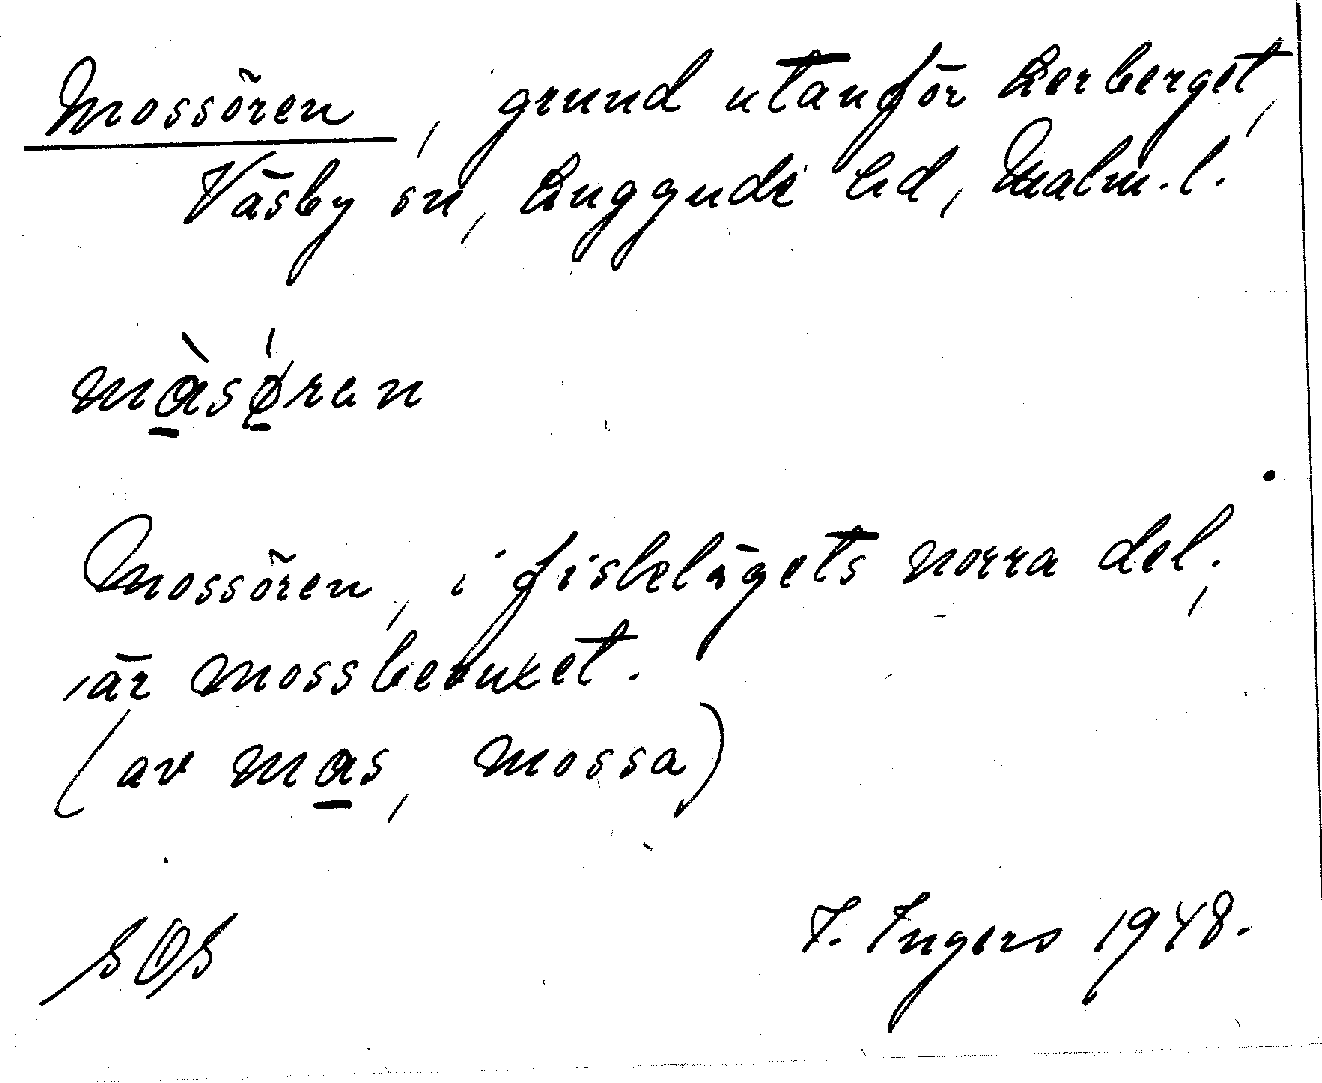 Mossören, grund utanför Lerberget,
Väsby sn, Luggude hd, Malm. l.
màsǿran
Mossören, i fiskelägets norra del,
är mossbevuxet.
(av mas, mossa)
SOS I. Ingers 1948.